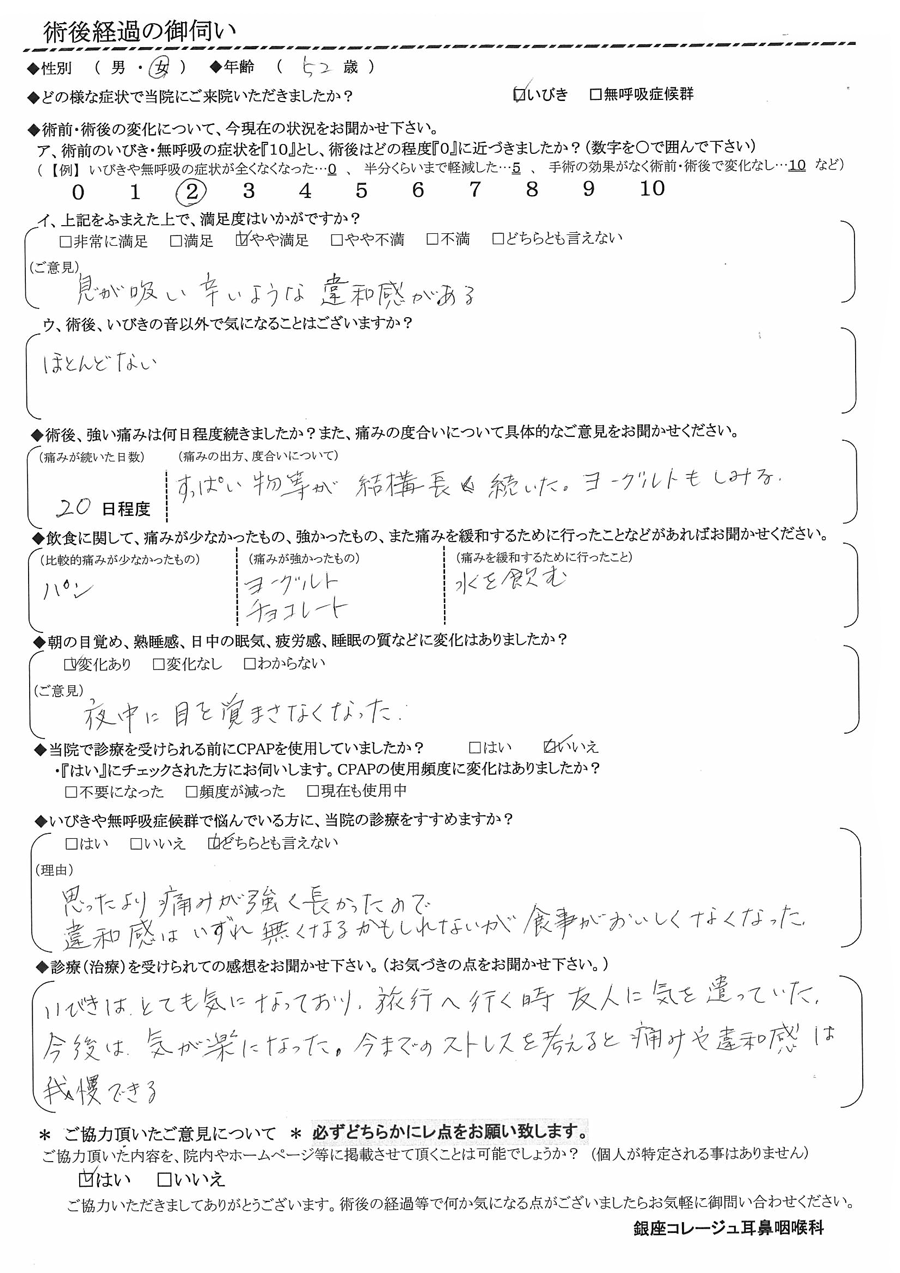 術後経過の御伺い
◆性別 ( 男 ・ 女 ) ◆年齢 ( 52 歳 )
◆どの様な症状で当院にご来院いただきましたか? ☑いびき □無呼吸症候群
◆術前・術後の変化について、今現在の状況をお聞かせ下さい。
ア、術前のいびき・無呼吸の症状を『10』とし、術後はどの程度『0』に近づきましたか?(数字を〇で囲んで下さい)
(【例】 いびきや無呼吸の症状が全くなくなった…0 、 半分くらいまで軽減した…5 、 手術の効果がなく術前・術後で変化なし…10 など)
0 1 2 3 4 5 6 7 8 9 10
イ、上記をふまえた上で、満足度はいかがですか?
□非常に満足 □満足 ☑やや満足 □やや不満 □不満 □どちらとも言えない
(ご意見)
息が吸い辛いような違和感がある
ウ、術後、いびきの音以外で気になることはございますか?
ほとんどない
◆術後、強い痛みは何日程度続きましたか?また、痛みの度合いについて具体的なご意見をお聞かせください。
(痛みが続いた日数) (痛みの出方、度合いについて)
すっぱい物等が結構長く続いた。ヨーグルトもしみる.
20 日程度
◆飲食に関して、痛みが少なかったもの、強かったもの、また痛みを緩和するために行ったことなどがあればお聞かせください。
(比較的痛みが少なかったもの) (痛みが強かったもの) (痛みを緩和するために行ったこと)
パン ヨーグルト 水を飲む
チョコレート
◆朝の目覚め、熟睡感、日中の眠気、疲労感、睡眠の質などに変化はありましたか?
☑変化あり □変化なし □わからない
(ご意見)
夜中に目を覚まさなくなった.
◆当院で診療を受けられる前にCPAPを使用していましたか? □はい ☑いいえ
・『はい』にチェックされた方にお伺いします。CPAPの使用頻度に変化はありましたか?
□不要になった □頻度が減った □現在も使用中
◆いびきや無呼吸症候群で悩んでいる方に、当院の診療をすすめますか?
□はい □いいえ ☑どちらとも言えない
(理由)
思ったより痛みが強く長かったので
違和感はいずれ無くなるかもしれないが食事がおいしくなくなった.
◆診療(治療)を受けられての感想をお聞かせ下さい。(お気づきの点をお聞かせ下さい。)
いびきは、とても気になっており、旅行へ行く時友人に気を遣っていた.
今後は、気が楽になった。今までのストレスを考えると痛みや違和感は
我慢できる
* ご協力頂いたご意見について * 必ずどちらかにレ点をお願い致します。
ご協力頂いた内容を、院内やホームページ等に掲載させて頂くことは可能でしょうか? (個人が特定される事はありません)
☑はい □いいえ
ご協力いただきましてありがとうございます。術後の経過等で何か気になる点がございましたらお気軽に御問い合わせください。
銀座コレージュ耳鼻咽喉科